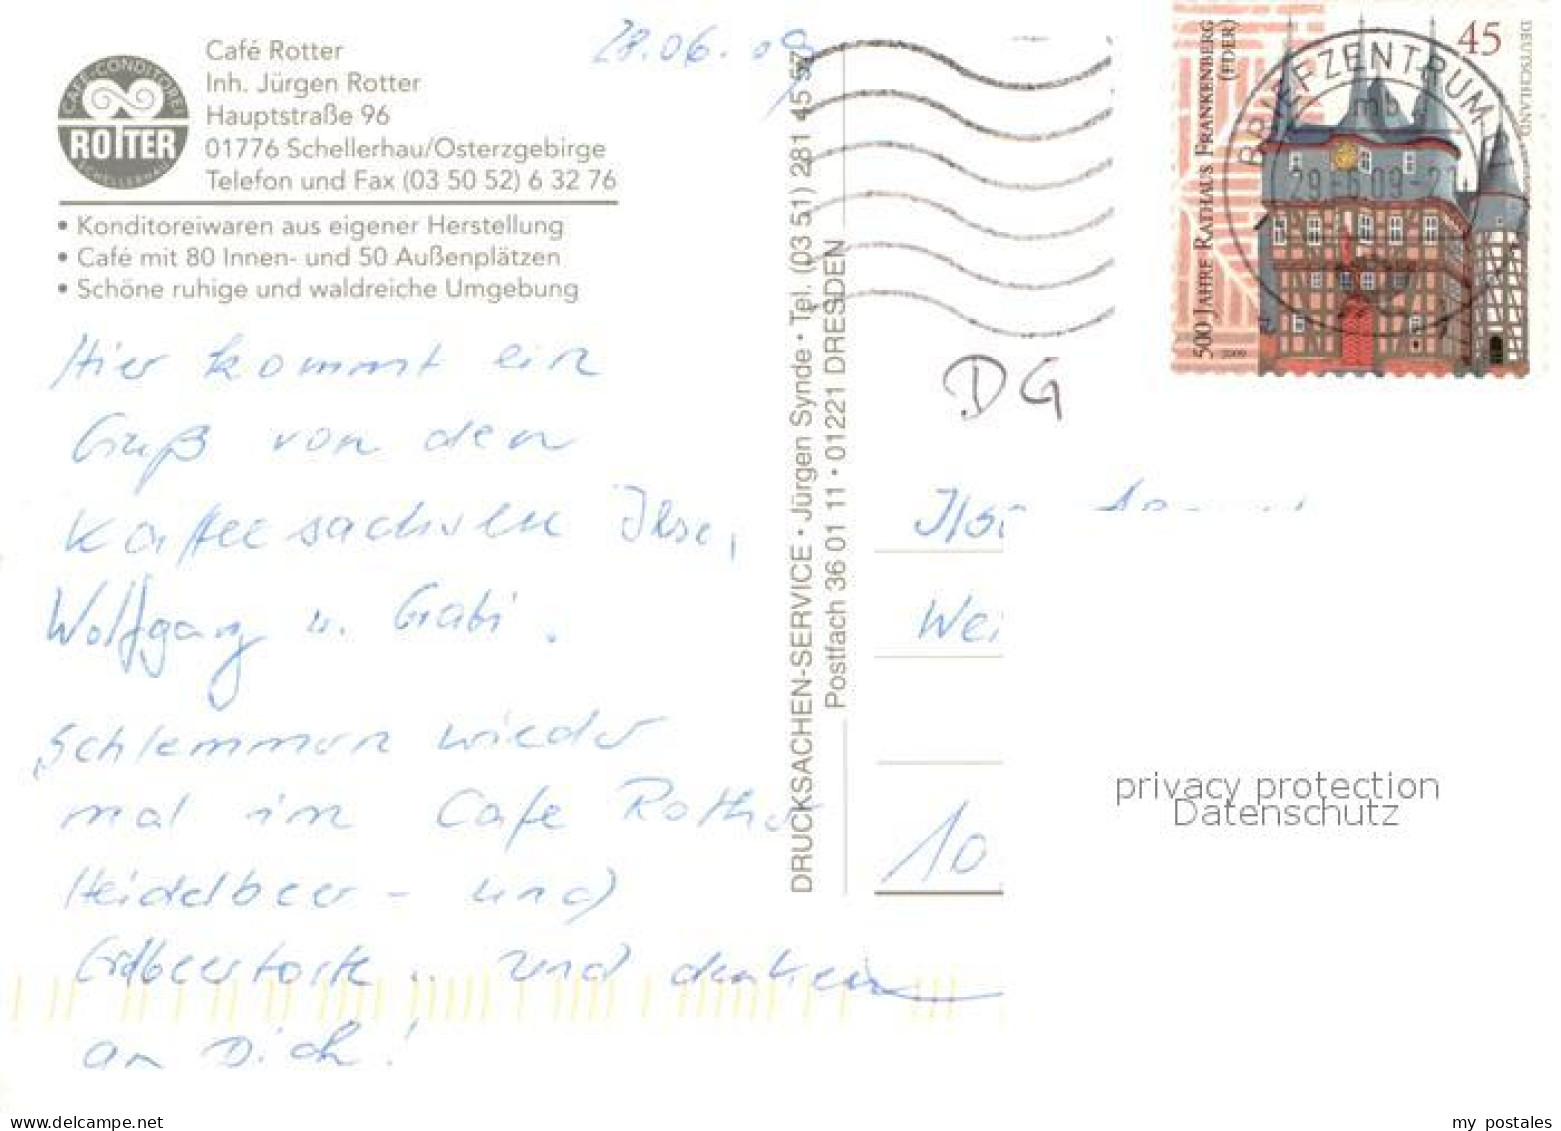 CAFÉ-CONDITOREI
ROTTER
SCHELLERHAU
Café Rotter
Inh. Jürgen Rotter
Hauptstraße 96
01776 Schellerhau/Osterzgebirge
Telefon und Fax (03 50 52) 6 32 76
• Konditoreiwaren aus eigener Herstellung
• Café mit 80 Innen- und 50 Außenplätzen
• Schöne ruhige und waldreiche Umgebung
28.06.09
Hier kommt ein
Gruß von den
Kaffeesachsen Ilse,
Wolfgang u. Gabi.
Schlemmen wieder
mal im Cafe Rother
Heidelbeer- und
Erdbeertorte.. und denken
an Dich!
DRUCKSACHEN-SERVICE • Jürgen Synde • Tel. (03 51) 281 45 57
Postfach 36 01 11 • 01221 DRESDEN
500 JAHRE RATHAUS FRANKENBERG
(EDER)
2009
45
DEUTSCHLAND
BRIEFZENTRUM
mb
29.-6.09-21
DG
Wei
10
privacy protection
Datenschutz
my postales